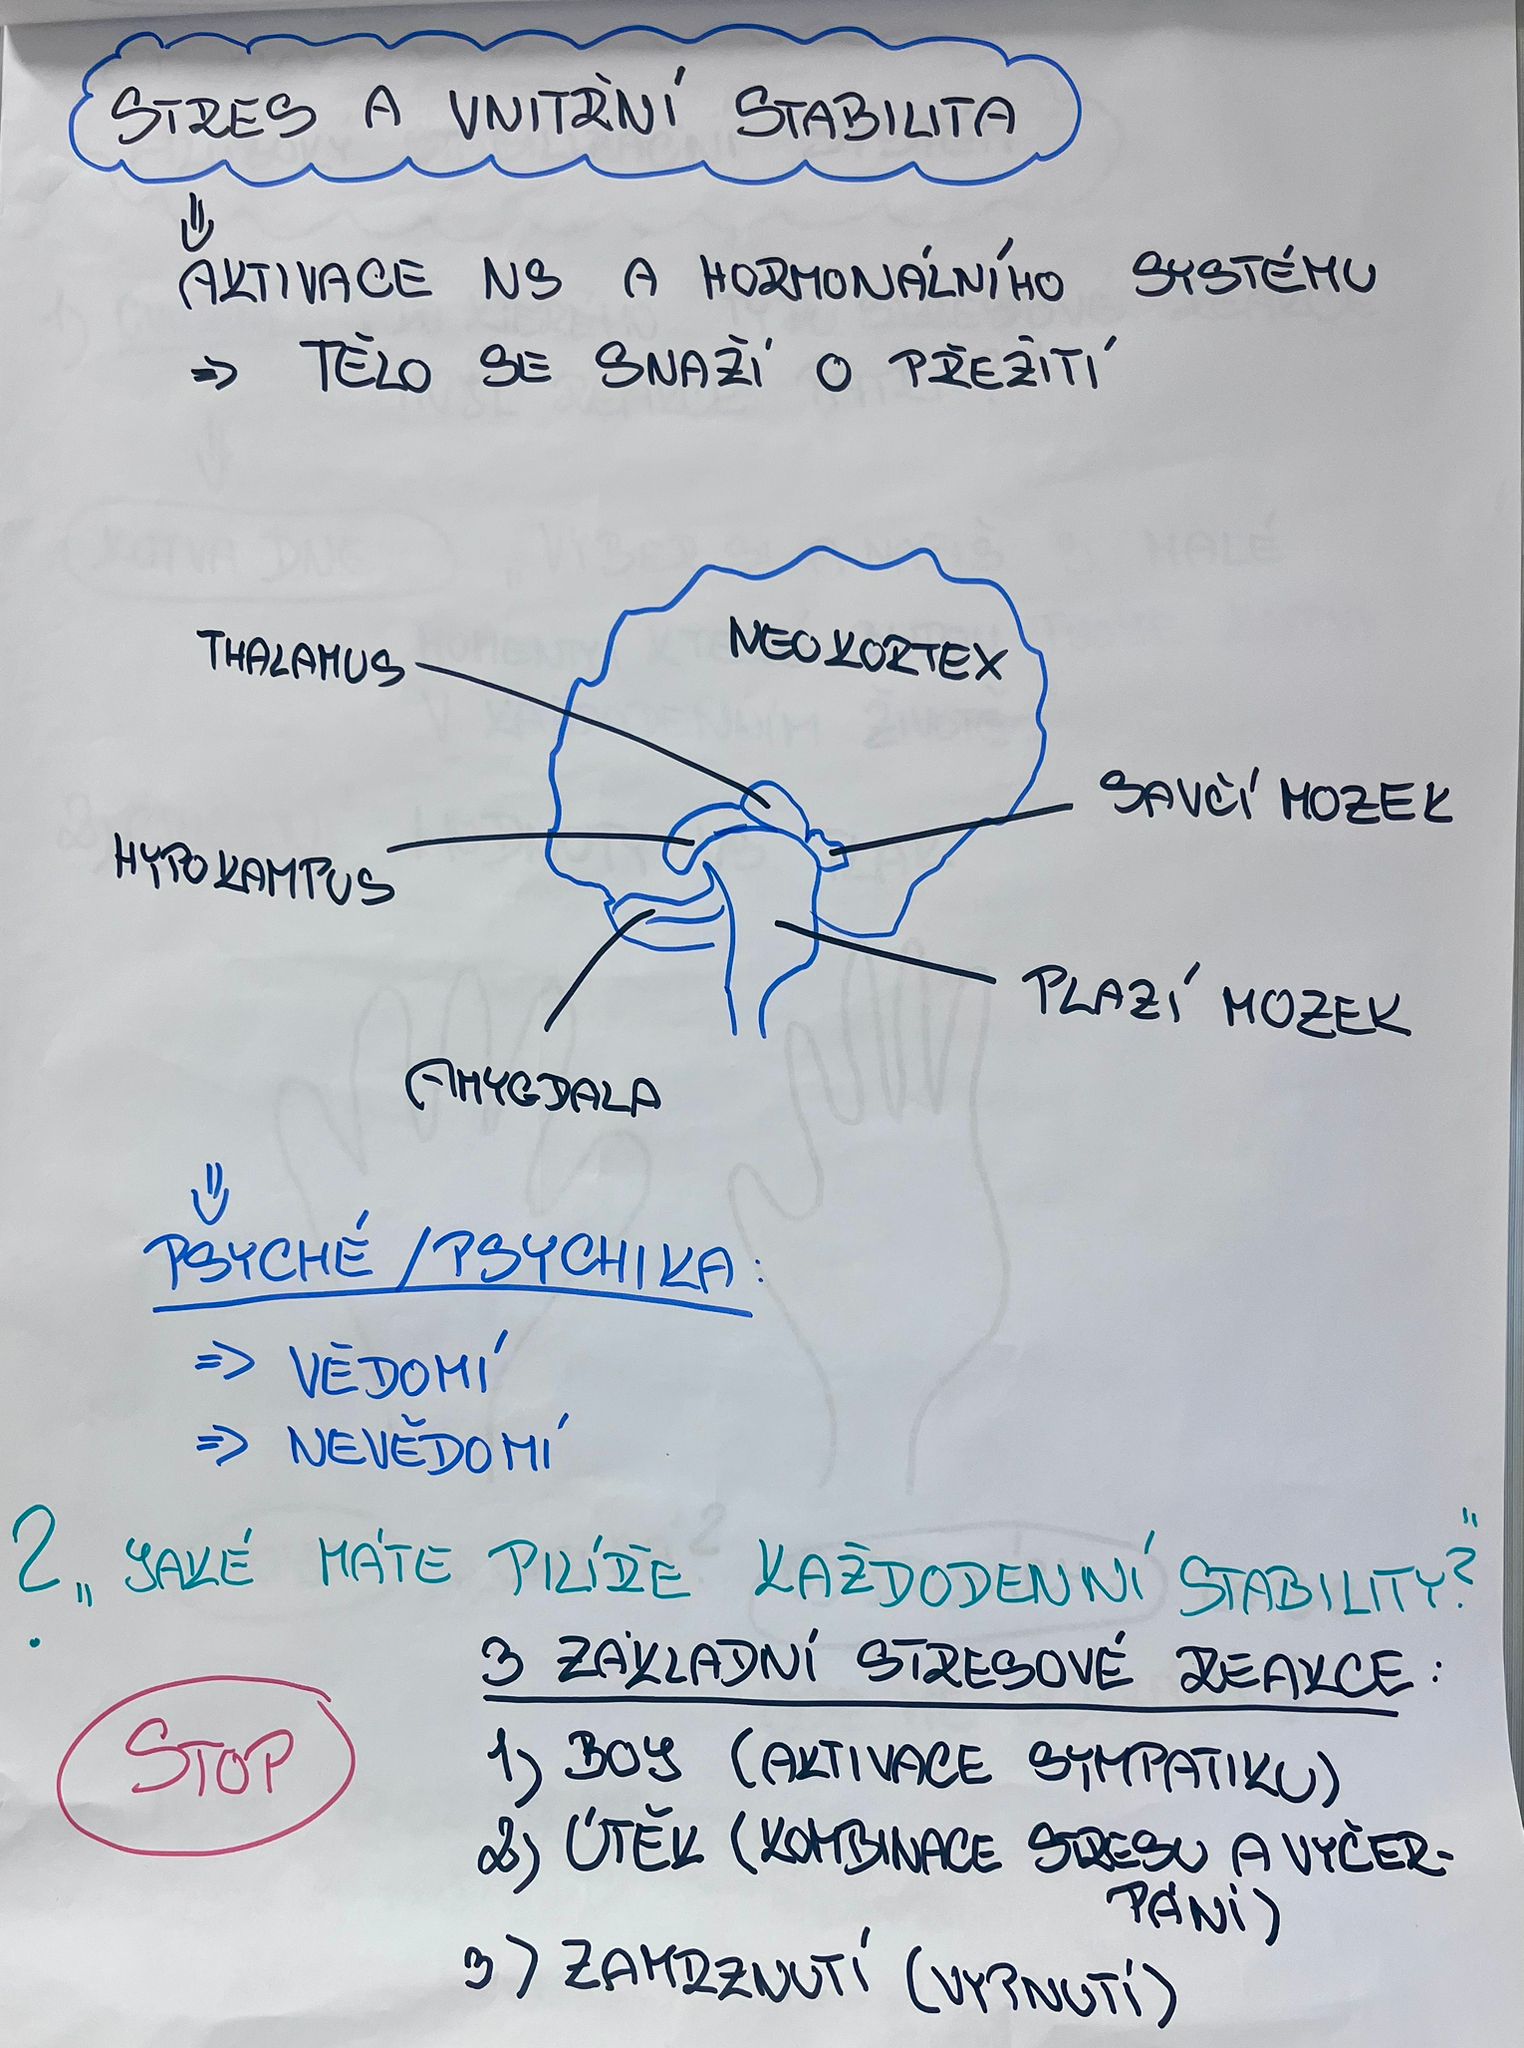 STRES A VNITŘNÍ STABILITA
⇓
AKTIVACE NS A HORMONÁLNÍHO SYSTÉMU
⇒ TĚLO SE SNAŽÍ O PŘEŽITÍ
NEOKORTEX
THALAMUS
SAVČÍ MOZEK
HYPOKAMPUS
PLAZÍ MOZEK
AMYGDALA
⇓
PSYCHÉ / PSYCHIKA:
⇒ VĚDOMÍ
⇒ NEVĚDOMÍ
? „JAKÉ MÁTE PILÍŘE KAŽDODENNÍ STABILITY?"
3 ZÁKLADNÍ STRESOVÉ REAKCE:
STOP
1) BOJ (AKTIVACE SYMPATIKU)
2) ÚTĚK (KOMBINACE STRESU A VYČER-
PÁNÍ)
3) ZAMRZNUTÍ (VYPNUTÍ)